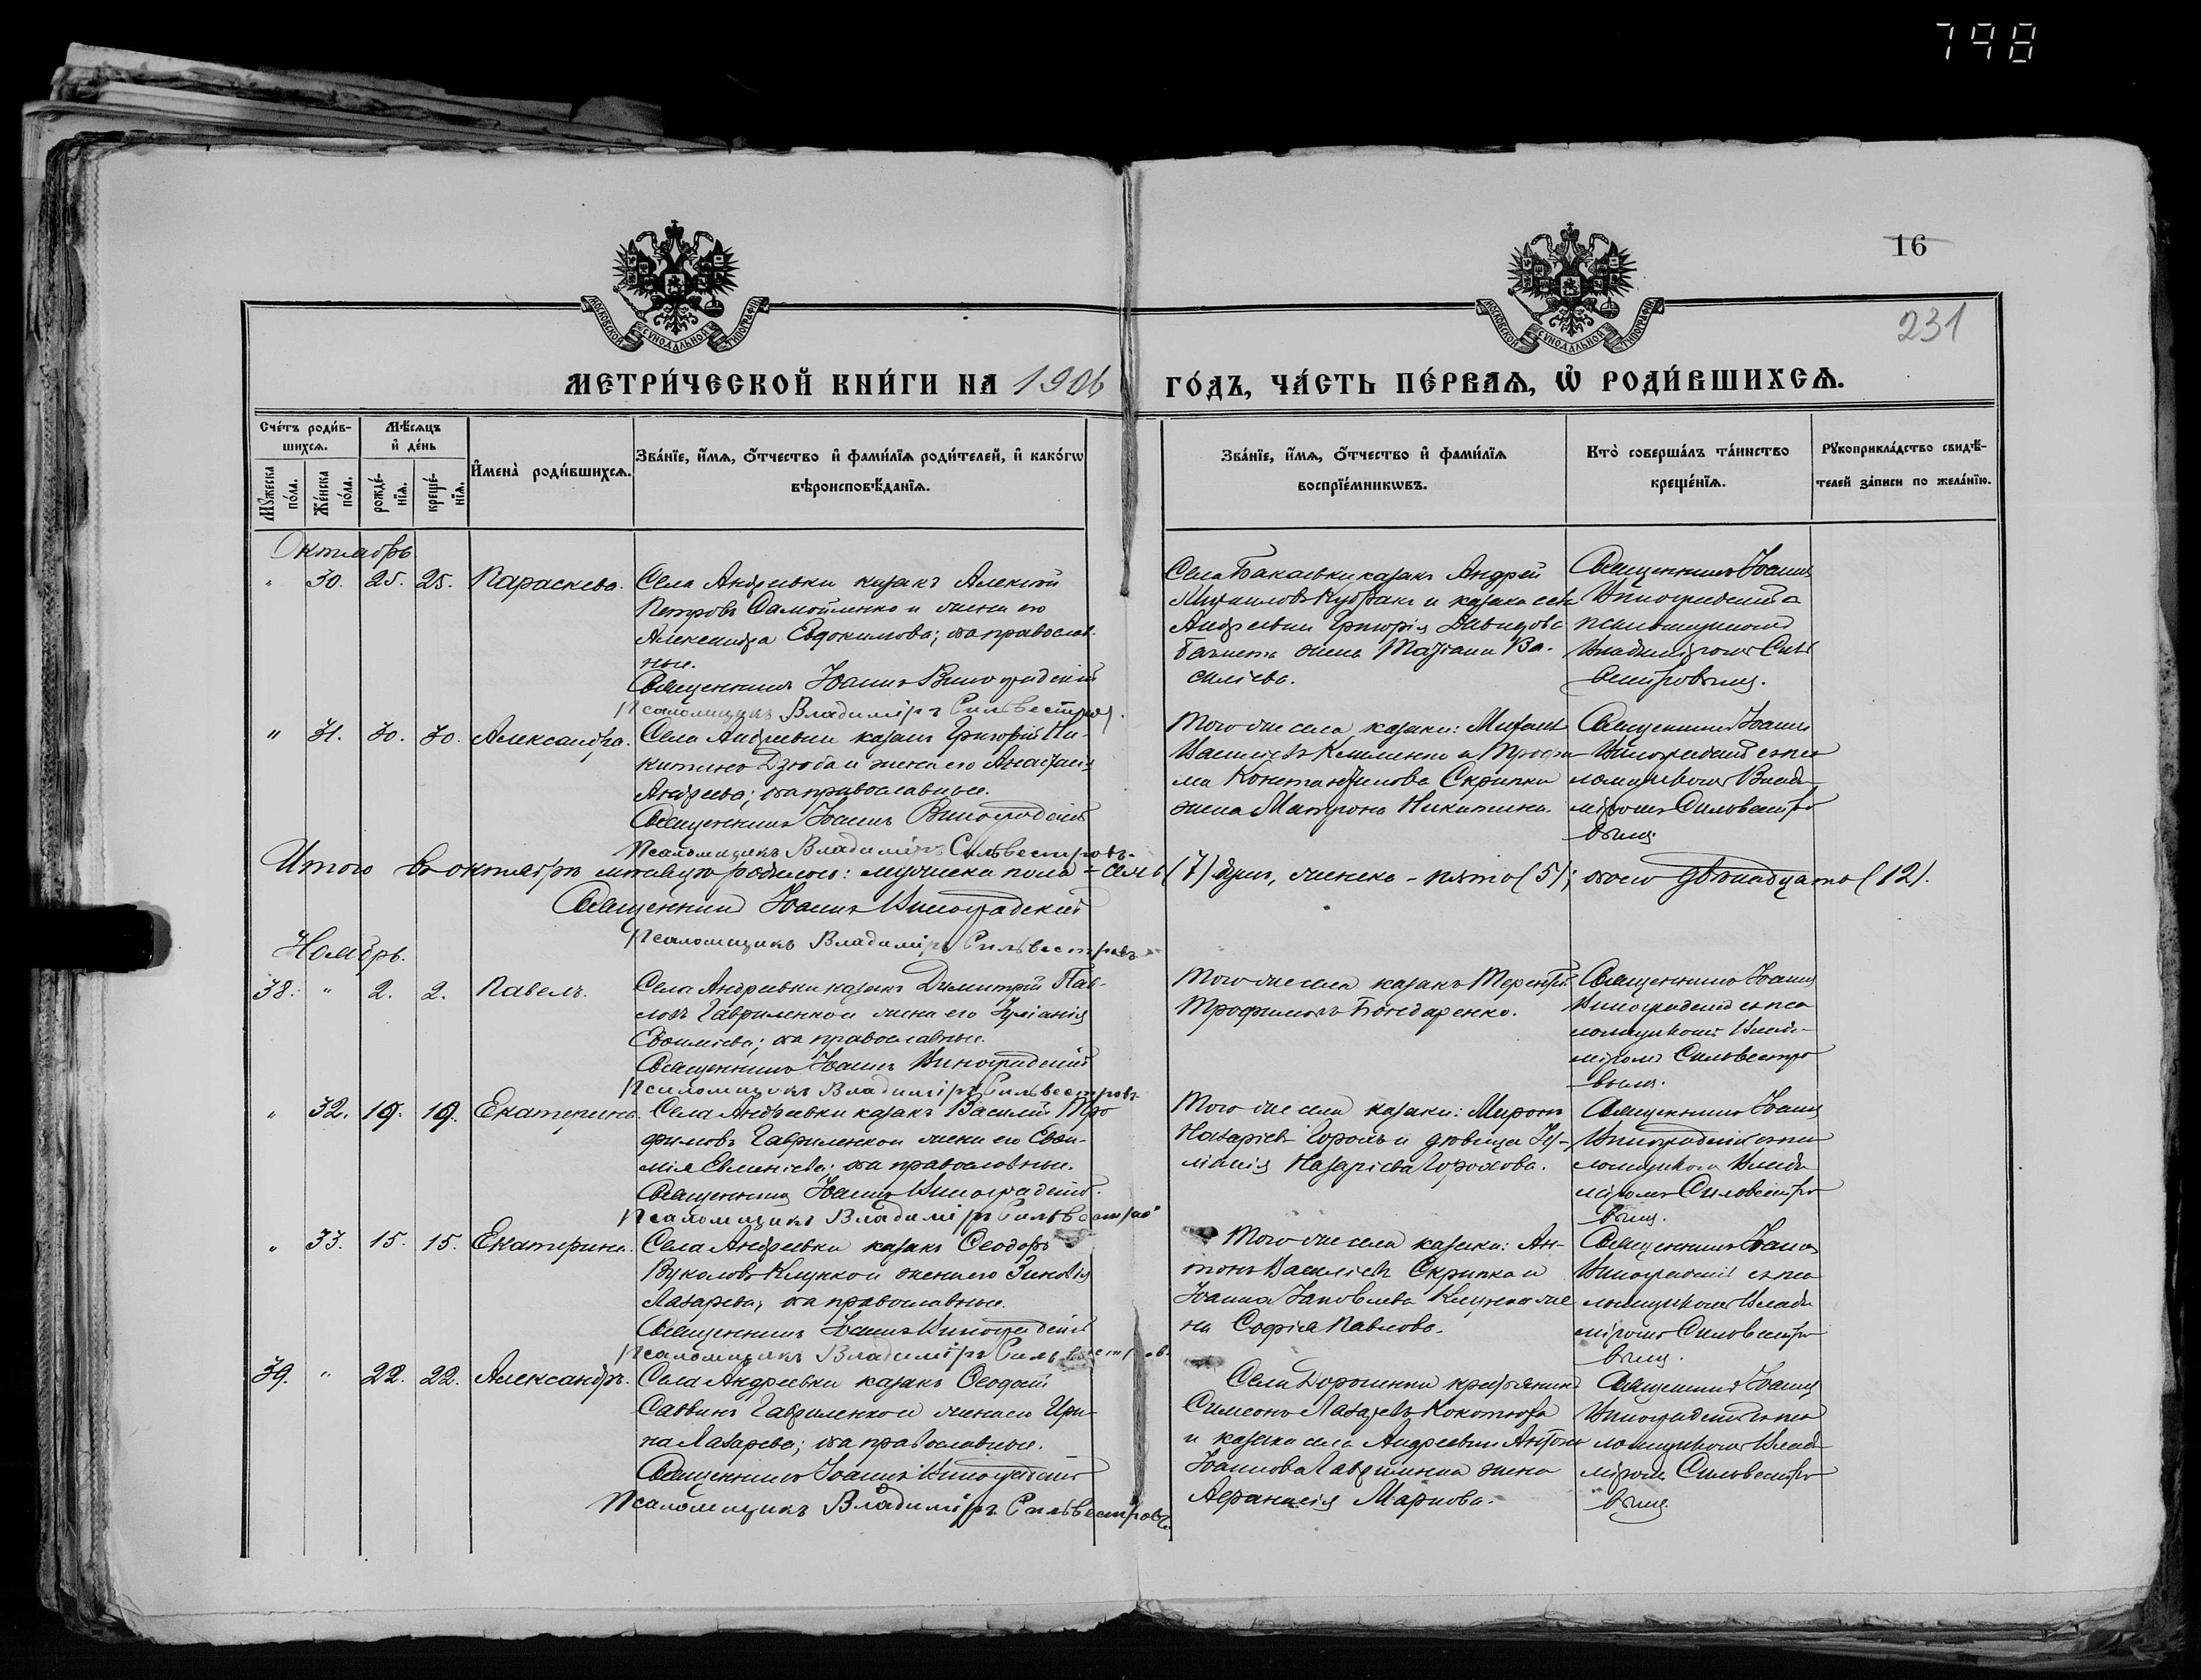 798
16
231
МОСКОВСКОЙ СѴНОДАЛЬНОЙ ТИПОГРАФІИ
МОСКОВСКОЙ СѴНОДАЛЬНОЙ ТИПОГРАФІИ
МЕТРИ́ЧЕСКОЙ КНИ́ГИ НА 1906 ГО́ДЪ, ЧА́СТЬ ПЕ́РВАѦ, Ѡ҆ РОДИ́ВШИХСѦ.
Сче́тъ роди́в-
шихсѧ.
Мѣ́сѧцъ
и҆ де́нь
Мꙋ́жеска по́ла.
Же́нска по́ла.
рожде́-нїѧ.
креще́-нїѧ.
И҆мена̀ роди́вшихсѧ.
Зва́нїе, и҆́мѧ, ѻ҆́тчество и҆ фами́лїѧ роди́телей, и҆ како́гѡ
вѣроисповѣ́данїѧ.
Зва́нїе, и҆́мѧ, ѻ҆́тчество и҆ фами́лїѧ
воспрїе́мникѡвъ.
Кто̀ соверша́лъ та́инство
креще́нїѧ.
Рꙋкоприкла́дство свидѣ́-
телей за́писи по жела́нїю.
Октябрь
" 30. 25. 25. Параскева.
Села Андреевки казакъ Алексѣй
Петровъ Самойленко и жена его
Александра Евдокимова; оба православ-
ные.
Священникъ Іоаннъ Виноградскій
Псаломщикъ Владиміръ Сильвестровъ.
Села Бакаевки казакъ Андрей
Михаиловъ Кубракъ и казака села
Андреевки Григорія Давидова
жена Татіана Ва-
силіева.
Священникъ Іоаннъ
Виноградскій съ
псаломщикомъ
Владиміромъ Силь
вестровымъ.
" 31. 30. 30. Александра.
Села Андреевки казакъ Григорій Ни-
китинъ Дзюба и жена его Анастасія
Андреева; оба православные.
Священникъ Іоаннъ Виноградскій
Псаломщикъ Владиміръ Сильвестровъ.
Того же села казаки: Михаилъ
Василіевъ Клименко и Трофи
ма Константинова Скрипки
жена Матрона Никитина.
Священникъ Іоаннъ
Виноградскій съ пса
ломщикомъ Влади
міромъ Сильвестро
вымъ.
Итого въ октябрѣ мѣсяцѣ родилось: мужеска пола - семь (7) душъ, женска - пять (5); обоего двѣнадцать (12).
Священникъ Іоаннъ Виноградскій
Псаломщикъ Владиміръ Сильвестровъ.
Ноябрь.
38. " 2. 2. Павелъ.
Села Андреевки казакъ Димитрій Пав-
ловъ Гавриленко и жена его Іуліанія
Евфиміева; оба православные.
Священникъ Іоаннъ Виноградскій
Псаломщикъ Владиміръ Сильвестровъ
Того же села казакъ Терентій
Трофимовъ Бондаренко.
Священникъ Іоаннъ
Виноградскій съ пса
ломщикомъ Влади-
міромъ Сильвестро
вымъ.
" 32. 19. 19. Екатерина.
Села Андреевки казакъ Василій Тро
фимовъ Гавриленко и жена его Евфи-
мія Евменіева; оба православные.
Священникъ Іоаннъ Виноградскій.
Псаломщикъ Владиміръ Сильвестровъ
Того же села казаки: Миронъ
Назаріевъ Горохъ и дѣвица Іу-
ліанія Назаріева Горохова.
Священникъ Іоаннъ
Виноградскій съ пса
ломщикомъ Влади
міромъ Сильвестро
вымъ.
" 33. 15. 15. Екатерина.
Села Андреевки казакъ Ѳеодоръ
Вуколовъ Клунко и жена его Зиновія
Лазарева; оба православные.
Священникъ Іоаннъ Виноградскій
Псаломщикъ Владиміръ Сильвестровъ
Того же села казаки: Ан-
тонъ Василіевъ Скрипка и
Іоанна Іаковлева же
на Софія Павлова.
Священникъ Іоаннъ
Виноградскій съ пса
ломщикомъ Влади
міромъ Сильвестро
вымъ.
39. " 22. 22. Александръ.
Села Андреевки казакъ Ѳеодосій
Саввинъ Гавриленко и жена его Ири-
на Лазарева; оба православные.
Священникъ Іоаннъ Виноградскій
Псаломщикъ Владиміръ Сильвестровъ
Села крестьянинъ
Симеонъ Лазаревъ Кокотюха
и казака села Андреевки Антона
Іоаннова Гавриленка жена
Аѳанасія Маркова.
Священникъ Іоаннъ
Виноградскій съ пса
ломщикомъ Влади
міромъ Сильвестро
вымъ.